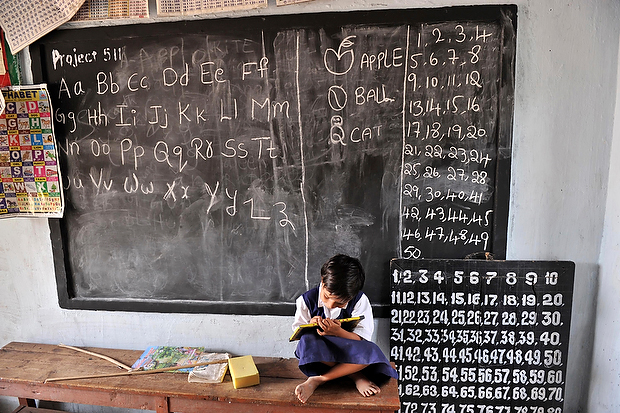 Project 511
Aa Bb Cc Dd Ee Ff
Gg Hh Ii Jj Kk Ll Mm
Nn Oo Pp Qq Rr Ss Tt
Uu Vv Ww Xx Yy Zz
APPLE
BALL
CAT
1, 2, 3, 4
5, 6, 7, 8
9, 10, 11, 12
13, 14, 15, 16
17, 18, 19, 20
21, 22, 23, 24
25, 26, 27, 28
29, 30, 40, 41
42, 43, 44, 45
46, 47, 48, 49
50.
1, 2 3 4 5 6 7 8 9 10
11, 12, 13, 14, 15, 16, 17, 18, 19, 20,
21, 22, 23, 24, 25, 26, 27, 28, 29, 30,
31, 32, 33, 34, 35, 36, 37, 38, 39, 40,
41, 42, 43, 44, 45, 46, 47, 48, 49, 50,
51, 52, 53, 54, 55, 56, 57, 58, 59, 60,
61, 62, 63, 64, 65, 66, 67, 68, 69, 70,
72 73 74 75 76 77 78 79 80